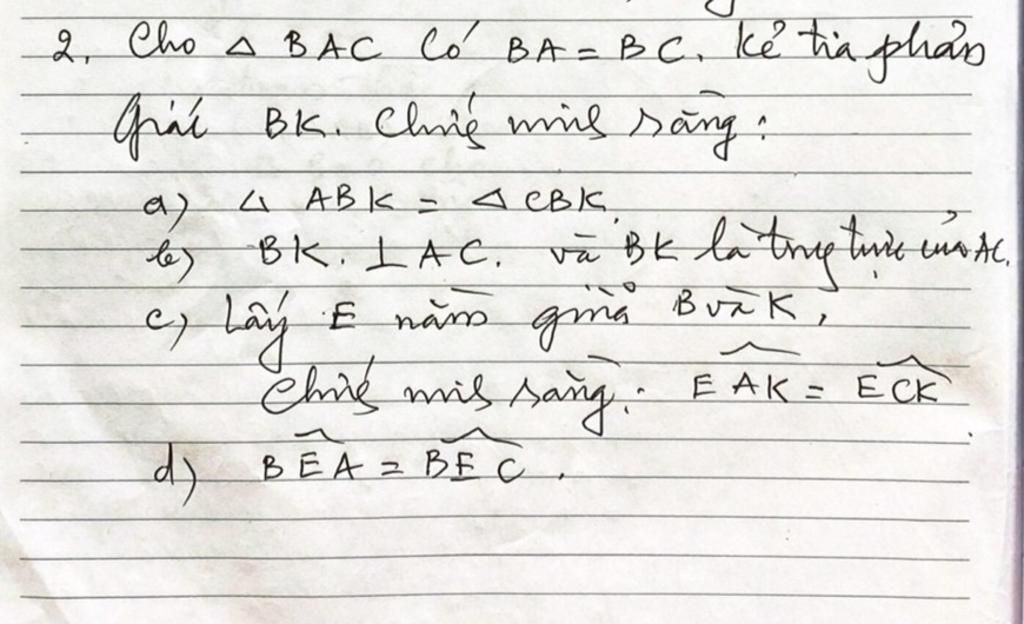 2, Cho △ BAC Có BA = BC. Kẻ tia phân
Giác BK. Chứng minh rằng:
a) △ ABK = △ CBK.
b) BK. ⊥ AC. và BK là trung trực của AC.
c) Lấy E nằm giữa B và K,
Chứng minh rằng: \widehat{EAK} = \widehat{ECK}
d) \widehat{BEA} = \widehat{BEC}.